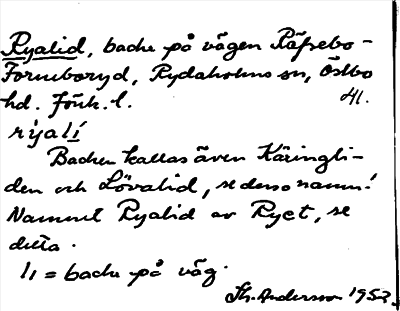 Ryalid, backe på vägen Räfsebo-
Fornaboryd, Rydaholms sn, Östbo
hd. Jönk. l. 41.
ryalí
Backen kallas även Käringli-
den och Lövalid, se desso namn!
Namnet Ryalid av Ryet, se
detta.
li = backe på väg.
Th. Andersson 1952.